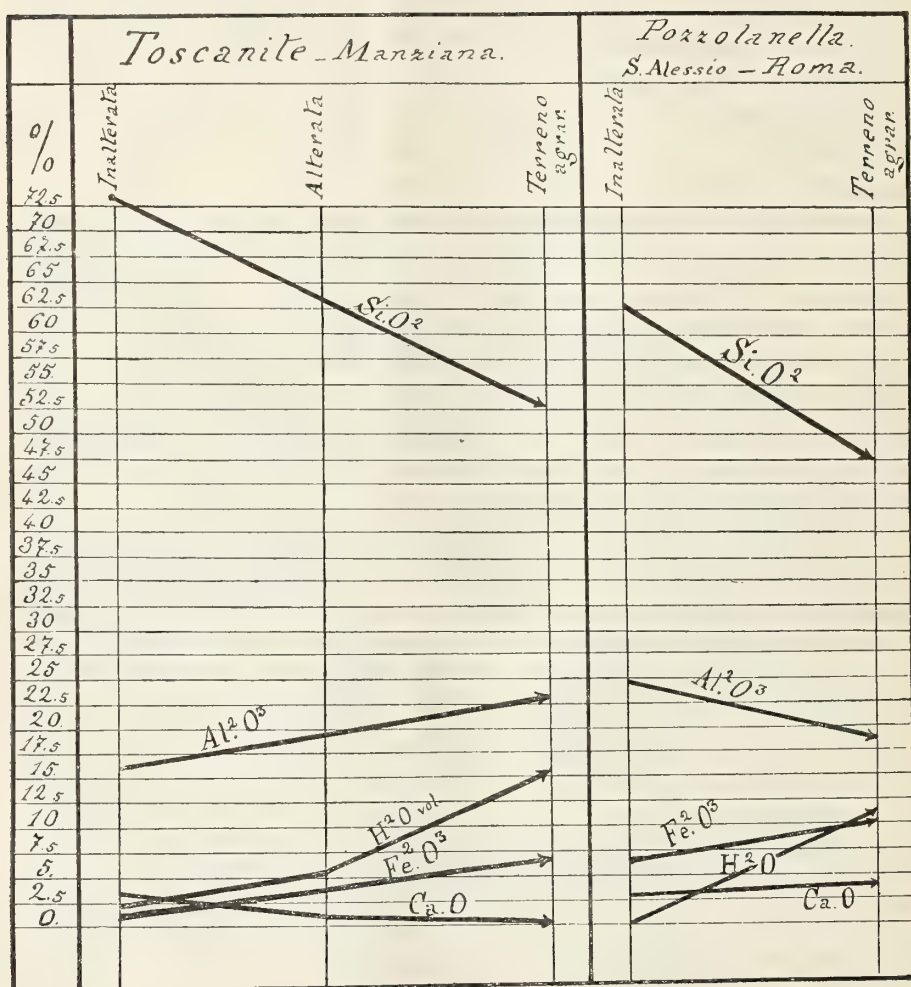 Toscanite - Manziana.
Pozzolanella.
S. Alessio - Roma.
%
Inalterata
Alterata
Terreno
agrar.
Inalterata
Terreno
agrar.
72.5
70
67.5
65
62.5
60
57.5
55
52.5
50
47.5
45
42.5
40
37.5
35
32.5
30
27.5
25
22.5
20.
17.5
15.
12.5
10
7.5
5.
2.5
0.
Si.O²
Al².O³
H²O vol.
Fe².O³
Ca.O
Si.O²
Al².O³
Fe².O³
H²O
Ca.O